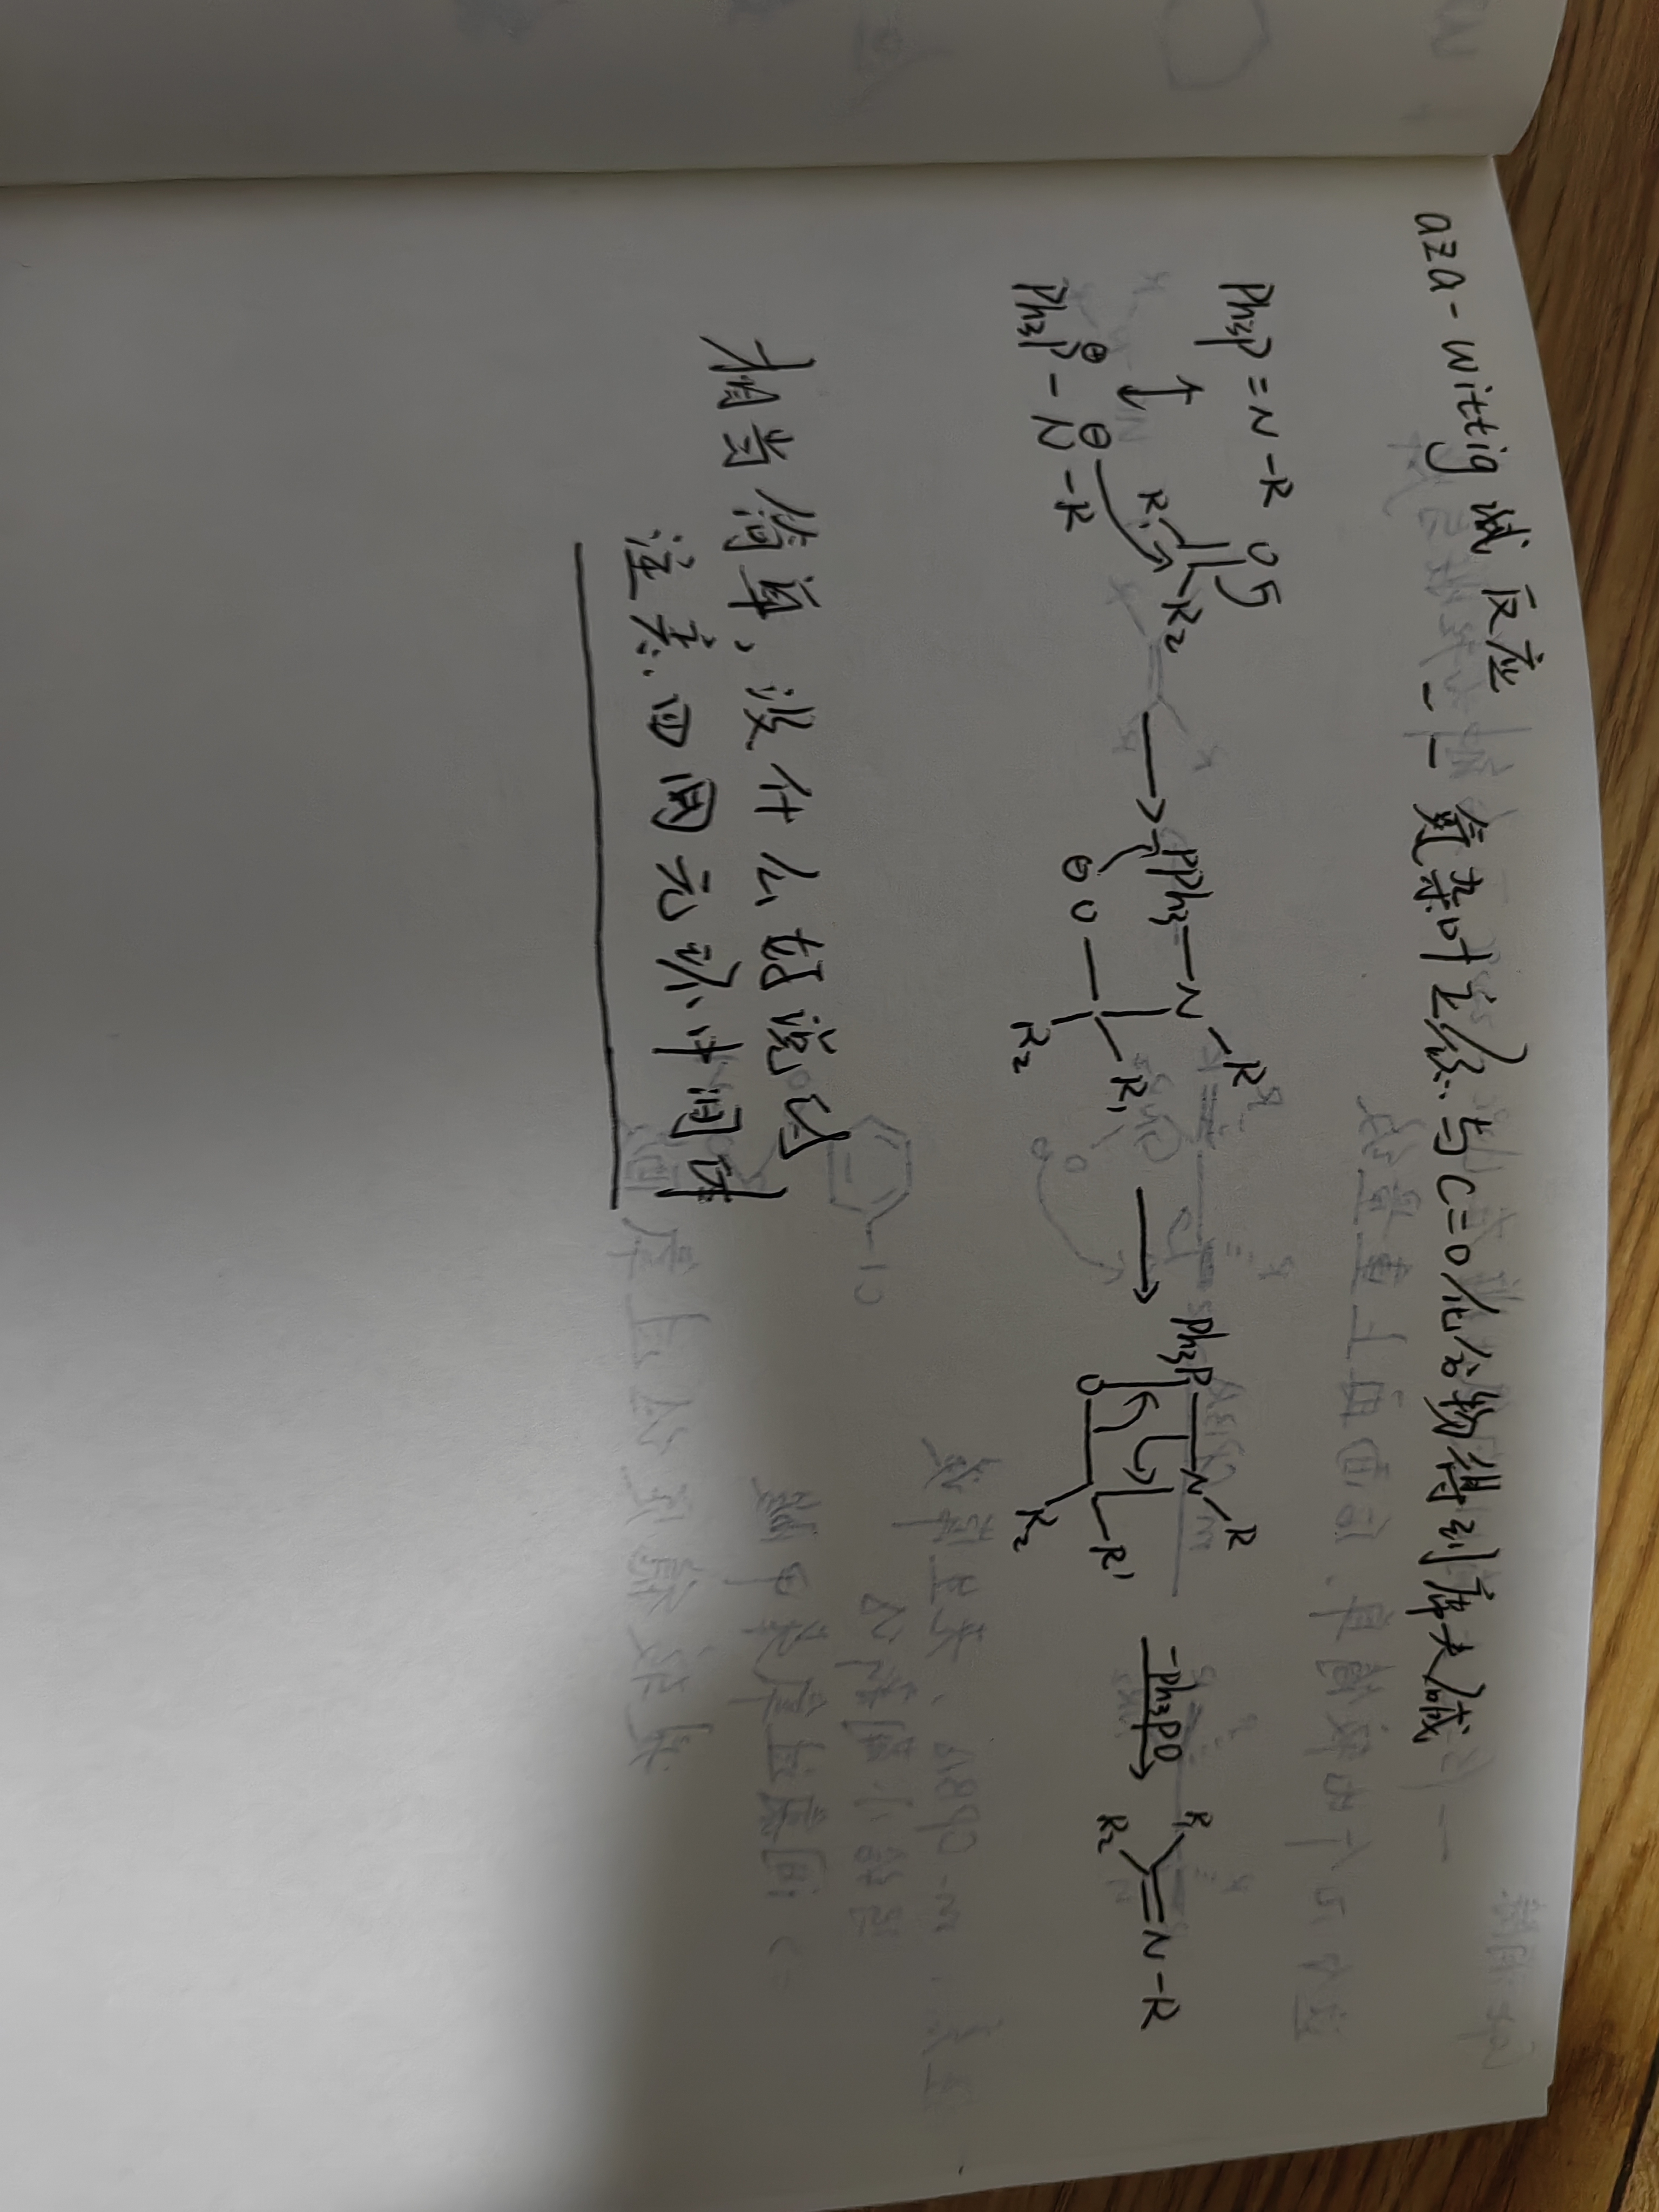 aza-wittig 碱 反应 —— 氮杂叶立德与C=O化合物得到席夫碱
Ph3P=N-R O
R1 R2
Ph3P⊕-N⊖-R
PPh3—N-R
⊖O R1
R2
Ph3P N R
O R1
R2
-Ph3PO
R1
R2 N-R
相当简单,没什么好说的
注意四圆元环中间体